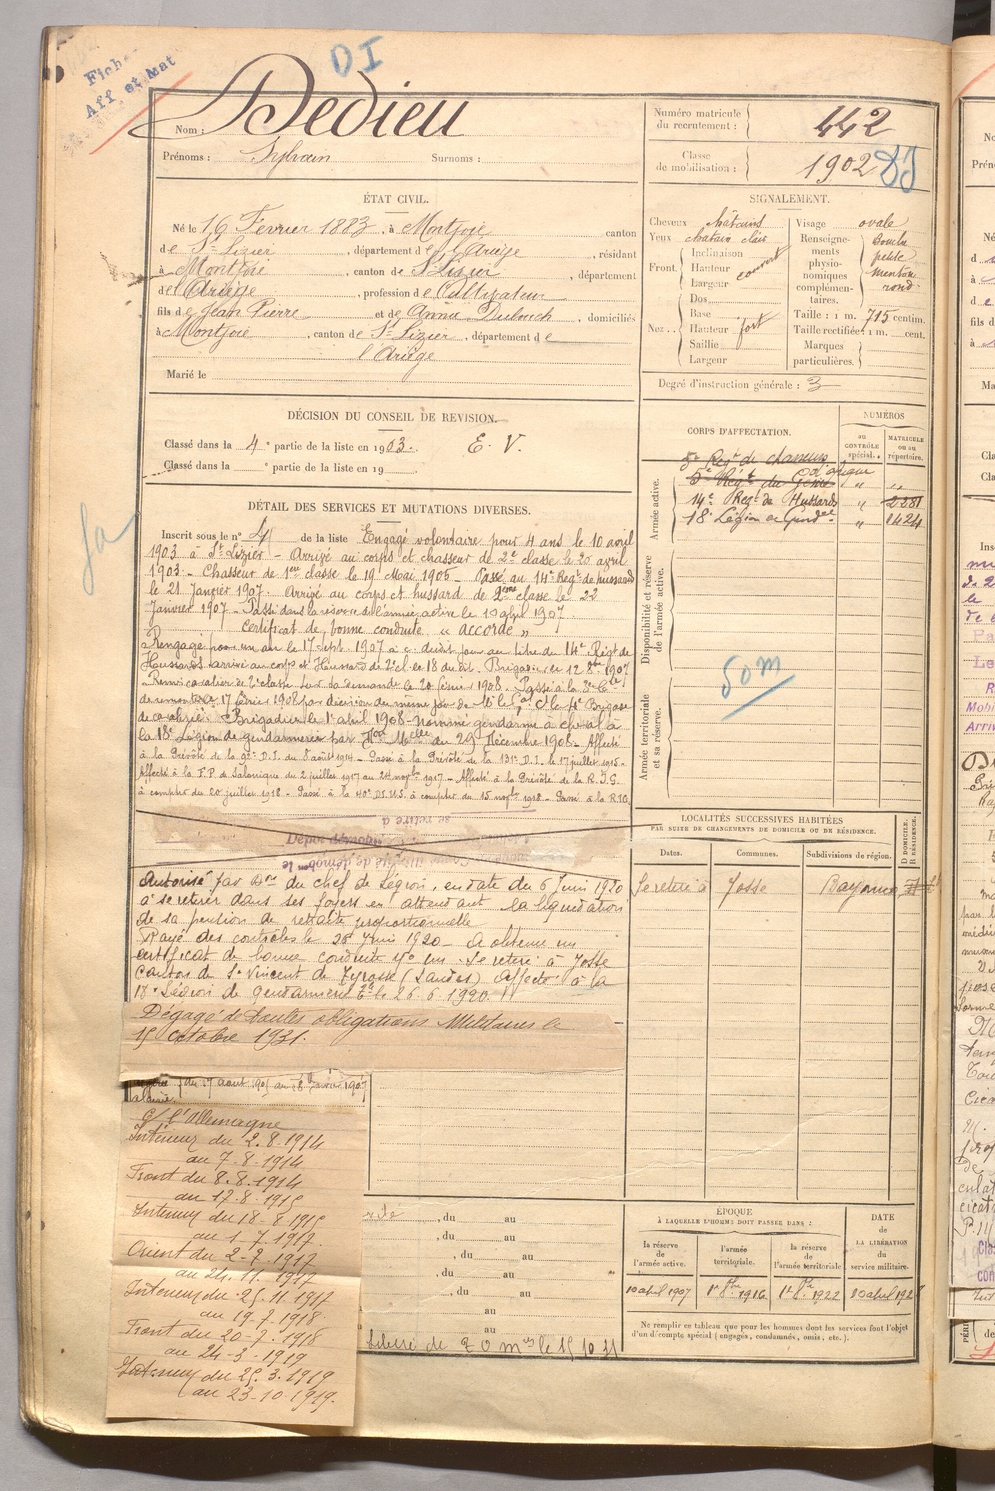 DI
Fiche
Aff et Mat
Nom : Dedieu
Prénoms : Sylvain Surnoms :
Numéro matricule
du recrutement : 442
Classe
de mobilisation : 1902
ÉTAT CIVIL.
Né le 16 Février 1883, à Montjoie canton
de St Lizier, département de l'Ariège, résidant
à Montjoie, canton de St Lizier, département
de l'Ariège, profession de Cultivateur
fils de Jean Pierre et de Anna Dubuch, domiciliés
à Montjoie, canton de St Lizier, département de
l'Ariège
Marié le
SIGNALEMENT.
Cheveux châtains
Yeux chatain clair
Front. Inclinaison
Hauteur couvert
Largeur
Nez. Dos
Base
Hauteur fort
Saillie
Largeur
Visage ovale
Renseigne-
ments
physio-
nomiques
complémen-
taires.
Bouche
petite
menton
rond
Taille : 1 m. 715 centim.
Taille rectifiée : 1 m. cent.
Marques
particulières.
Degré d'instruction générale : 3
DÉCISION DU CONSEIL DE REVISION.
Classé dans la 4e partie de la liste en 1903. E. V.
Classé dans la e partie de la liste en 19
CORPS D'AFFECTATION.
NUMÉROS
au
CONTRÔLE
spécial.
MATRICULE
ou au
répertoire.
Armée active.
5e Régt de chasseurs d'afrique
5e Régt du Génie " "
14e Régt de Hussards " 2281
18e Légion de Gendrie " 8424
Disponibilité et réserve
de l'armée active.
Armée territoriale
et sa réserve.
50 m
DÉTAIL DES SERVICES ET MUTATIONS DIVERSES.
Inscrit sous le n° 4 de la liste Engagé volontaire pour 4 ans le 10 avril
1903 à St Lizier - Arrivé au corps et chasseur de 2e classe le 20 avril
1903 - Chasseur de 1ère classe le 19 Mai 1905 - Passé au 14e Régt de hussards
le 21 Janvier 1907. Arrivé au corps et hussard de 2ème classe le 22
Janvier 1907 - Passé dans la réserve de l'armée active le 10 avril 1907
certificat de bonne conduite " accordé "
Rengagé pour un an le 17 sept. 1907 à c. dudit jour au titre du 14e Régt de
Hussards arrivé au corps et Hussard de 2e cl. le 18 du dit. Brigadier le 12 8bre 1907
Remis cavalier de 2e classe sur sa demande le 20 février 1908. Passé à la 3e Cie
de remonte le 17 février 1908 par décision du même jour de
de cavalerie. Brigadier le 1er avril 1908 - nommé gendarme à cheval à
la 18e Légion de gendarmerie par du 29 Décembre 1908 - Affecté
à la Prévôté de la D.I. du 8 août 1914 - Passé à la Prévôté de la 131e D.I. le 17 juillet 1915 -
Affecté à la F.P. de Salonique du 2 juillet 1917 au 24 novbre 1917 - Affecté à la Prévôté de la R.J.G.
à compter du 20 juillet 1918 - Passé à la 40e D.I.U.S. à compter du 15 novbre 1918 - Passé à la
se retire à
Dépôt démobil
Autorisé par Don du chef de Légion, en date du 6 Juin 1920
à se retirer dans ses foyers en attendant la liquidation
de sa pension de retraite proportionnelle
Rayé des contrôles le 26 Juin 1920 - A obtenu un
certificat de bonne conduite Se retire à Josse
canton de St Vincent de Tyrosse (Landes) Affecté à la
18e Légion de gendarmerie le 26.6.1920.
Dégagé de toutes obligations Militaires le
15 octobre 1931.
LOCALITÉS SUCCESSIVES HABITÉES
PAR SUITE DE CHANGEMENTS DE DOMICILE OU DE RÉSIDENCE.
Dates. Communes. Subdivisions de région. D DOMICILE. R RÉSIDENCE.
Se retire à Josse Bayonne
du 7 aout 1905 au 18 janvier 1907
c/ l'Allemagne
Intérieur du 2.8.1914
au 7-8-1914
Front du 8.8.1914
au 17.8.1915
Intérieur du 18-8.1915
au 1-7.1917
Orient du 2-7.1917
au 24.11.1917
Intérieur du 25.11.1917
au 19.7.1918
Front du 20-7.1918
au 24-3-1919
Intérieur du 25.3.1919
au 23-10-1919.
, du au
, du au
, du au
, du au
au
au
Libéré de le 15.10.31
ÉPOQUE
À LAQUELLE L'HOMME DOIT PASSER DANS :
la réserve
de l'armée active.
l'armée
territoriale.
la réserve
de l'armée territoriale
DATE
de
LA LIBÉRATION
du
service militaire.
10 avril 1907 1er 8bre 1916 1er 8bre 1922
Ne remplir ce tableau que pour les hommes dont les services font l'objet
d'un compte spécial (engagés, condamnés, omis, etc.).